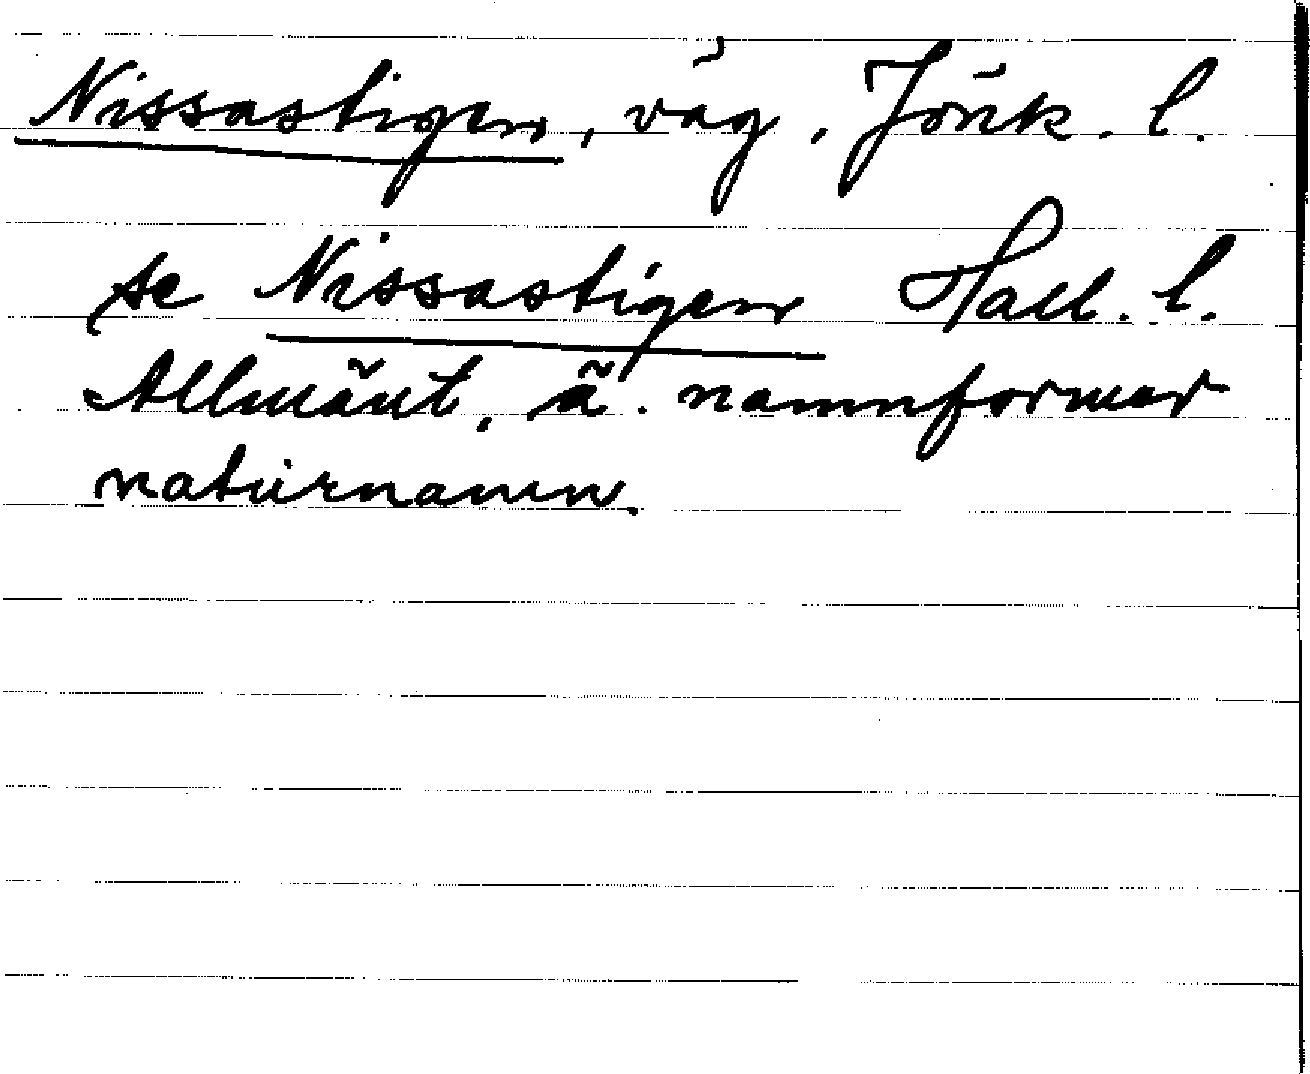 Nissastigen, väg, Jönk. l.
se Nissastigen Hall. l.
Allmänt, ä. namnformer
naturnamn.